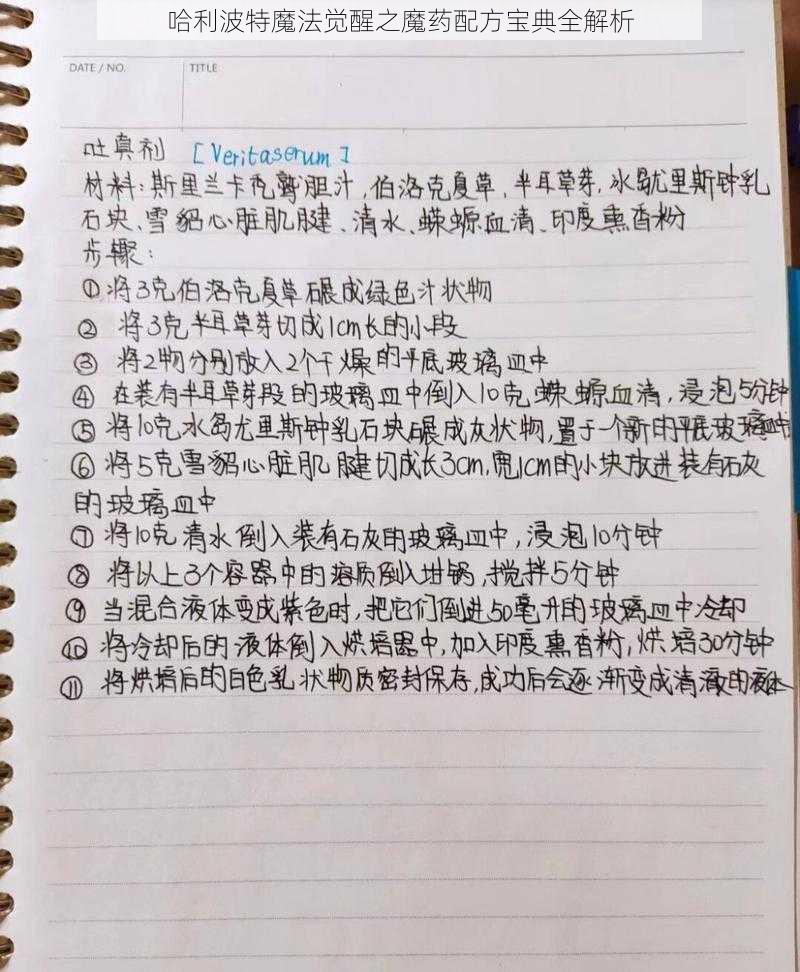 哈利波特魔法觉醒之魔药配方宝典全解析
DATE / NO.
TITLE
吐真剂 [Veritaserum]
材料:斯里兰卡秃鹫胆汁,伯洛克夏草,半耳草芽,冰岛尤里斯钟乳
石块、雪貂心脏肌腱、清水、蝾螈血清、印度熏香粉
步骤:
①将3克伯洛克夏草碾成绿色汁状物
② 将3克半耳草芽切成1cm长的小段
③ 将2物分别放入2个干燥的平底玻璃皿中
④ 在装有半耳草芽段的玻璃皿中倒入10克蝾螈血清,浸泡5分钟
⑤ 将10克冰岛尤里斯钟乳石块碾成灰状物,置于一个新的平底玻璃皿中
⑥ 将5克雪貂心脏肌腱切成长3cm,宽1cm的小块放进装有石灰
的玻璃皿中
⑦ 将10克清水倒入装有石灰的玻璃皿中,浸泡10分钟
⑧ 将以上3个容器中的溶质倒入坩锅,搅拌5分钟
⑨ 当混合液体变成紫色时,把它们倒进50毫升的玻璃皿中冷却
⑩ 将冷却后的液体倒入烘焙器中,加入印度熏香粉,烘焙30分钟
⑪ 将烘焙后的白色乳状物质密封保存,成功后会逐渐变成清澈的液体